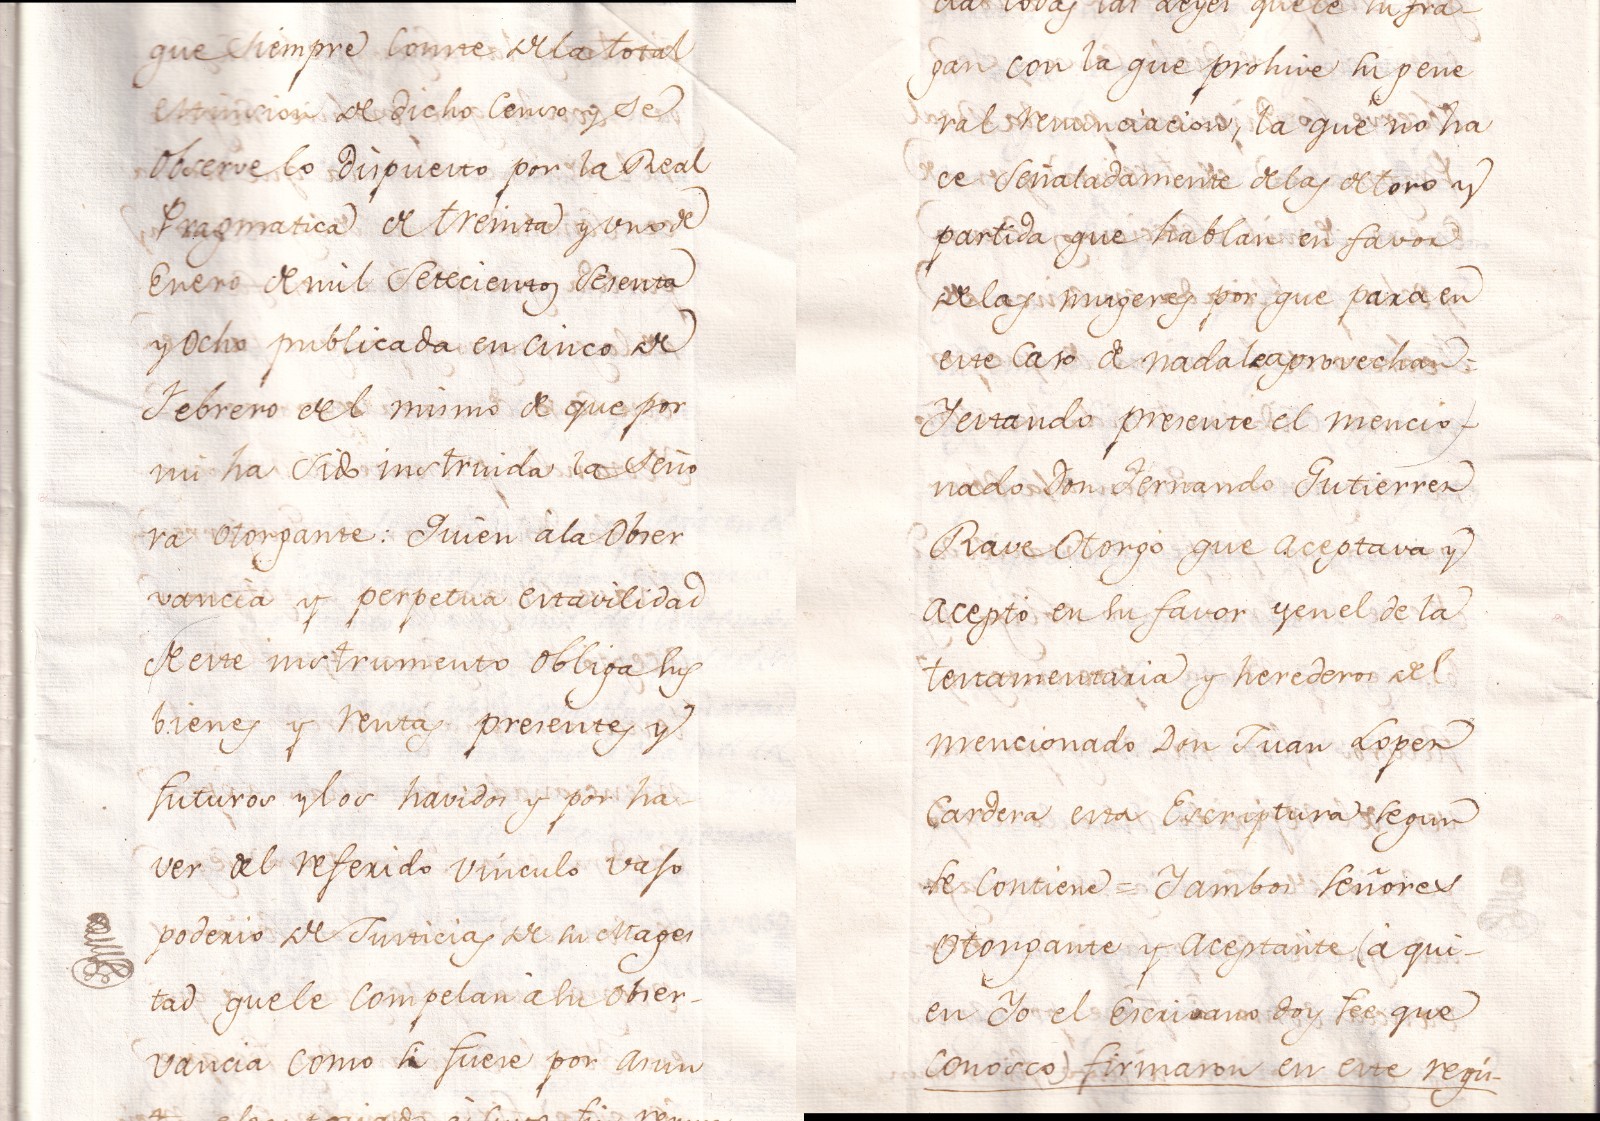 que siempre conste de la total
extincion de dicho Censo y se
observe lo dispuesto por la Real
Pragmatica de treinta y uno de
Enero de mil Setecientos Sesenta
y Ocho publicada en cinco de
Febrero del mismo de que por
mi ha sido instruida la Seño
ra otorgante: Quien à la Obser
vancia y perpetua estavilidad
de este instrumento obliga sus
bienes y rentas presentes y
futuros y los havidos y por ha-
ver del referido vinculo vajo
poderio de Justicias de su Mages
tad que le compelan à su obser-
vancia como si fuese por asun
todas las Leyes que le sufra-
gan con la que prohive su gene
ral renunciacion, la que no ha
ce señaladamente de las de toro y
partida que hablan en favor
de las mugeres por que para en
este caso de nada le aprovechan=
Y estando presente el mencio-
nado Don Fernando Gutierrez
Rave Otorgó que aceptava y
aceptó en su favor y en el de la
testamentaria y herederos del
mencionado Don Juan Lopez
Cardera esta Escriptura segun
se contiene = Y ambos señores
otorgante y aceptante (à qui-
en Yo el Escrivano doy fee que
conosco) firmaron en este regis-